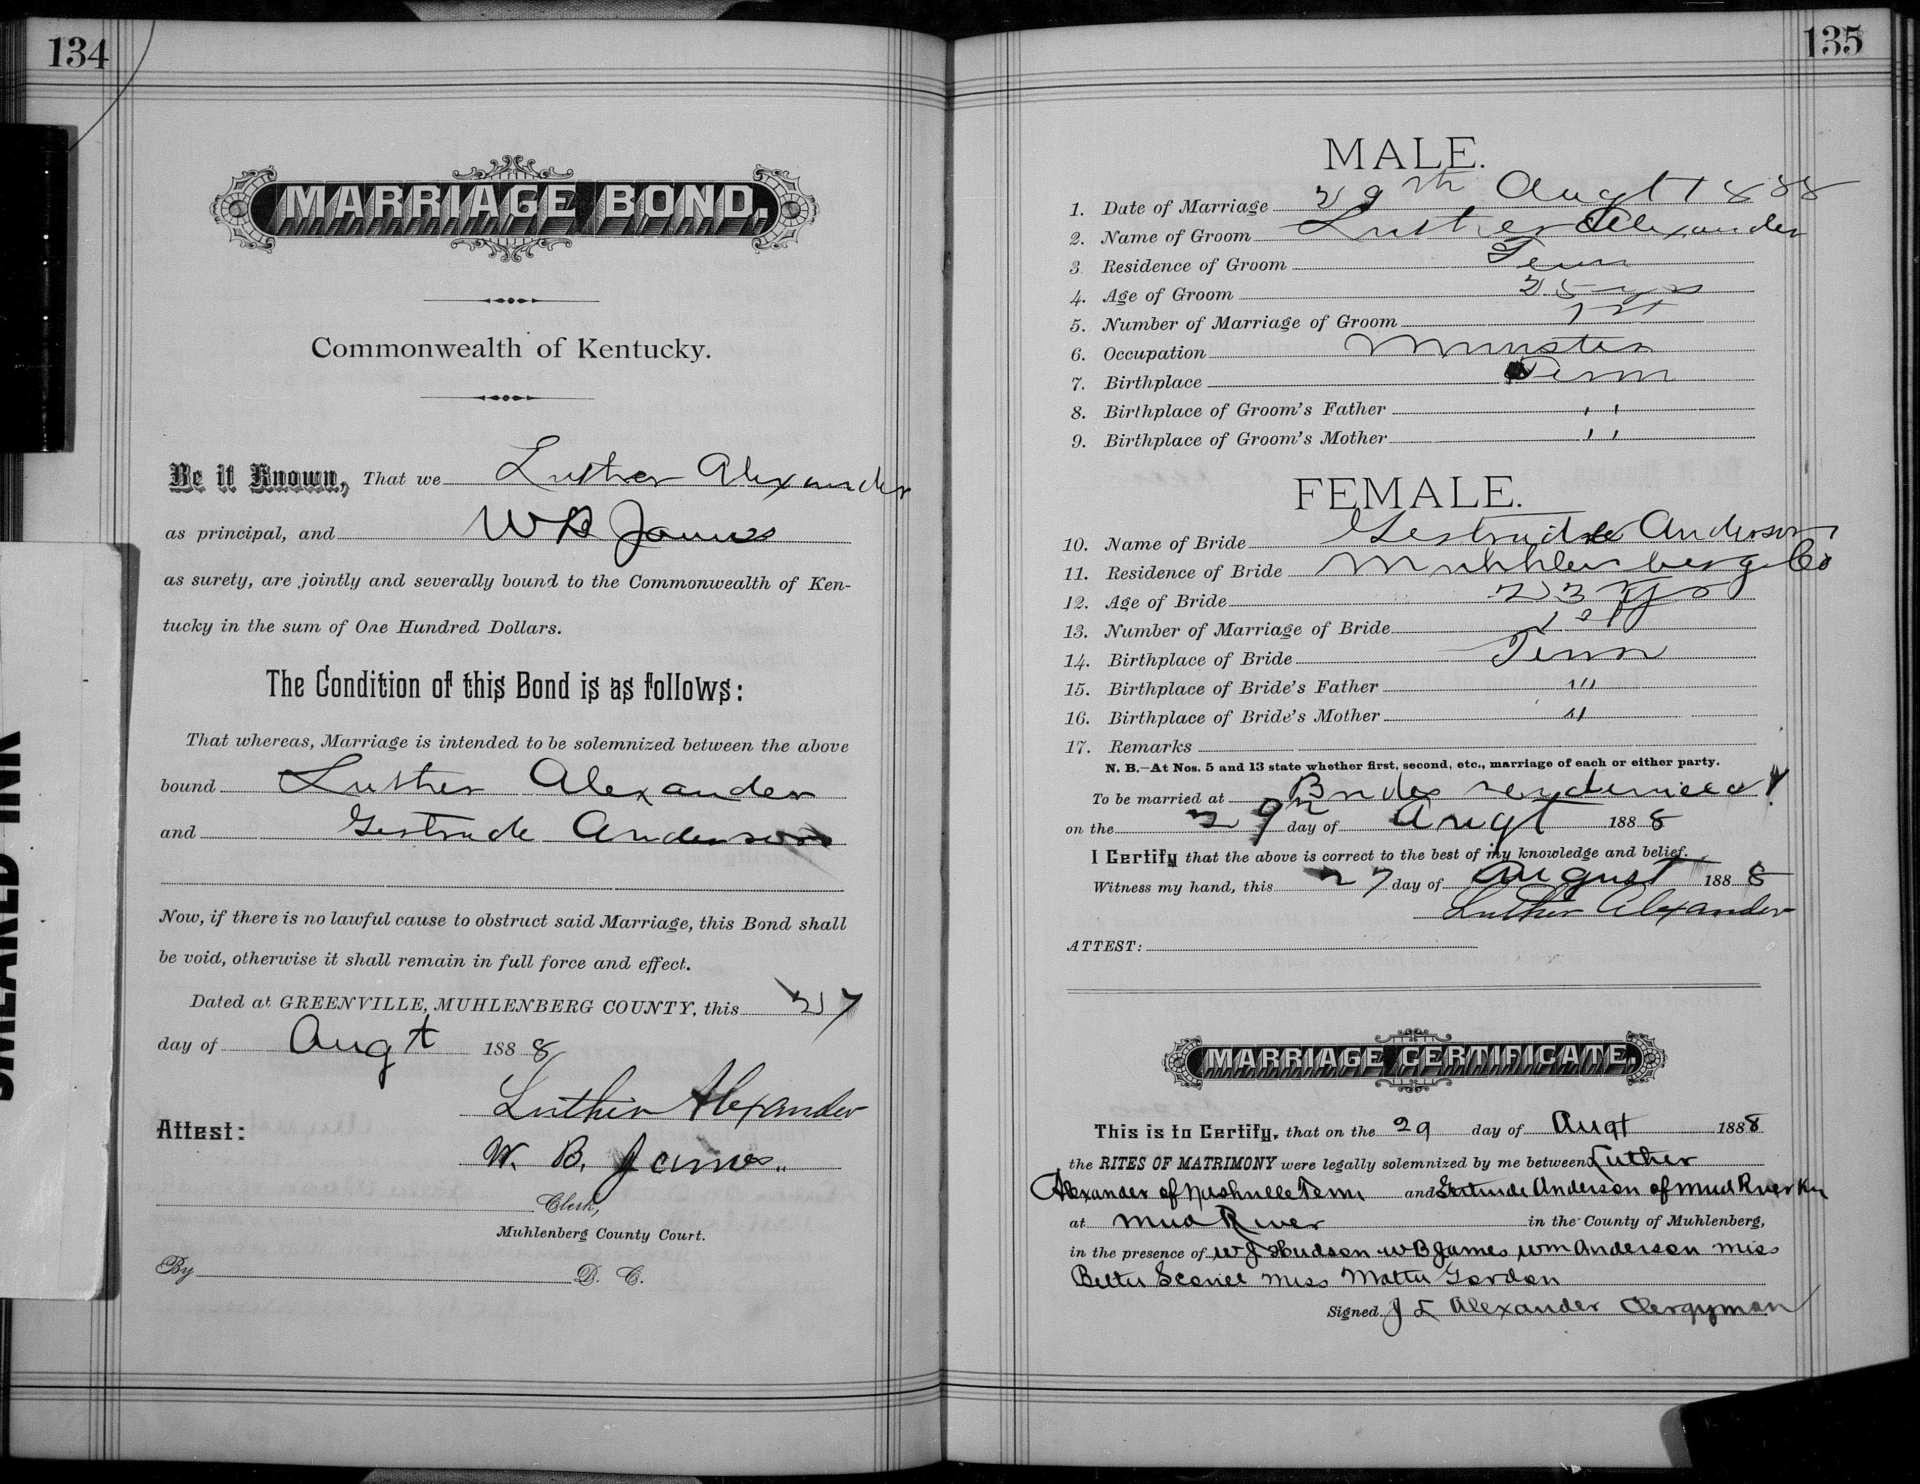 134
MARRIAGE BOND,
Commonwealth of Kentucky.
Be it Known, That we Luther Alexander
as principal, and W B James
as surety, are jointly and severally bound to the Commonwealth of Ken-
tucky in the sum of One Hundred Dollars.
The Condition of this Bond is as follows:
That whereas, Marriage is intended to be solemnized between the above
bound Luther Alexander
and Gertrude Anderson
Now, if there is no lawful cause to obstruct said Marriage, this Bond shall
be void, otherwise it shall remain in full force and effect.
Dated at GREENVILLE, MUHLENBERG COUNTY, this 27
day of Augt 1888
Luther Alexander
Attest:
W. B. James
Clerk,
Muhlenberg County Court.
By D. C.
SMEARED INK
135
MALE.
1. Date of Marriage 29th Augt 1888
2. Name of Groom Luther Alexander
3 Residence of Groom Tenn
4. Age of Groom 25 yrs
5. Number of Marriage of Groom 1st
6. Occupation Minister
7. Birthplace Tenn
8. Birthplace of Groom's Father ''
9. Birthplace of Groom's Mother ''
FEMALE.
10. Name of Bride Gertrude Anderson
11. Residence of Bride Muhlenberg Co
12. Age of Bride 23 yrs
13. Number of Marriage of Bride 1st
14. Birthplace of Bride Tenn
15. Birthplace of Bride's Father '''
16. Birthplace of Bride's Mother ''
17. Remarks
N. B.—At Nos. 5 and 13 state whether first, second, etc., marriage of each or either party.
To be married at Brides
on the 29th day of Augt 1888
I Certify that the above is correct to the best of my knowledge and belief.
Witness my hand, this 27 day of August 1888
Luther Alexander
ATTEST:
MARRIAGE CERTIFICATE.
This is to Certify, that on the 29 day of Augt 1888
the RITES OF MATRIMONY were legally solemnized by me between Luther
Alexander of Nashville Tenn and Gertrude Anderson of Mud River Ky
at Mud River in the County of Muhlenberg,
in the presence of W J Hudson W B James Wm Anderson Miss
Miss Gordon
Signed J L Alexander Clergyman